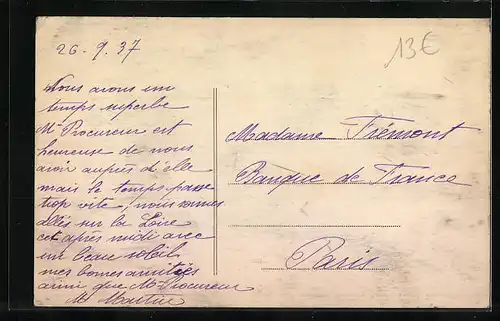 26. 9. 37
13€
Nous avons un
temps superbe
Me Procureur est
heureuse de nous
avoir auprès d'elle
mais le temps passe
trop vite, nous sommes
allés sur la Loire
cet après midi avec
un beau soleil
mes bonnes amitiés
ainsi que Me Procureur
M Martin
Madame Frémont
Banque de France
Paris